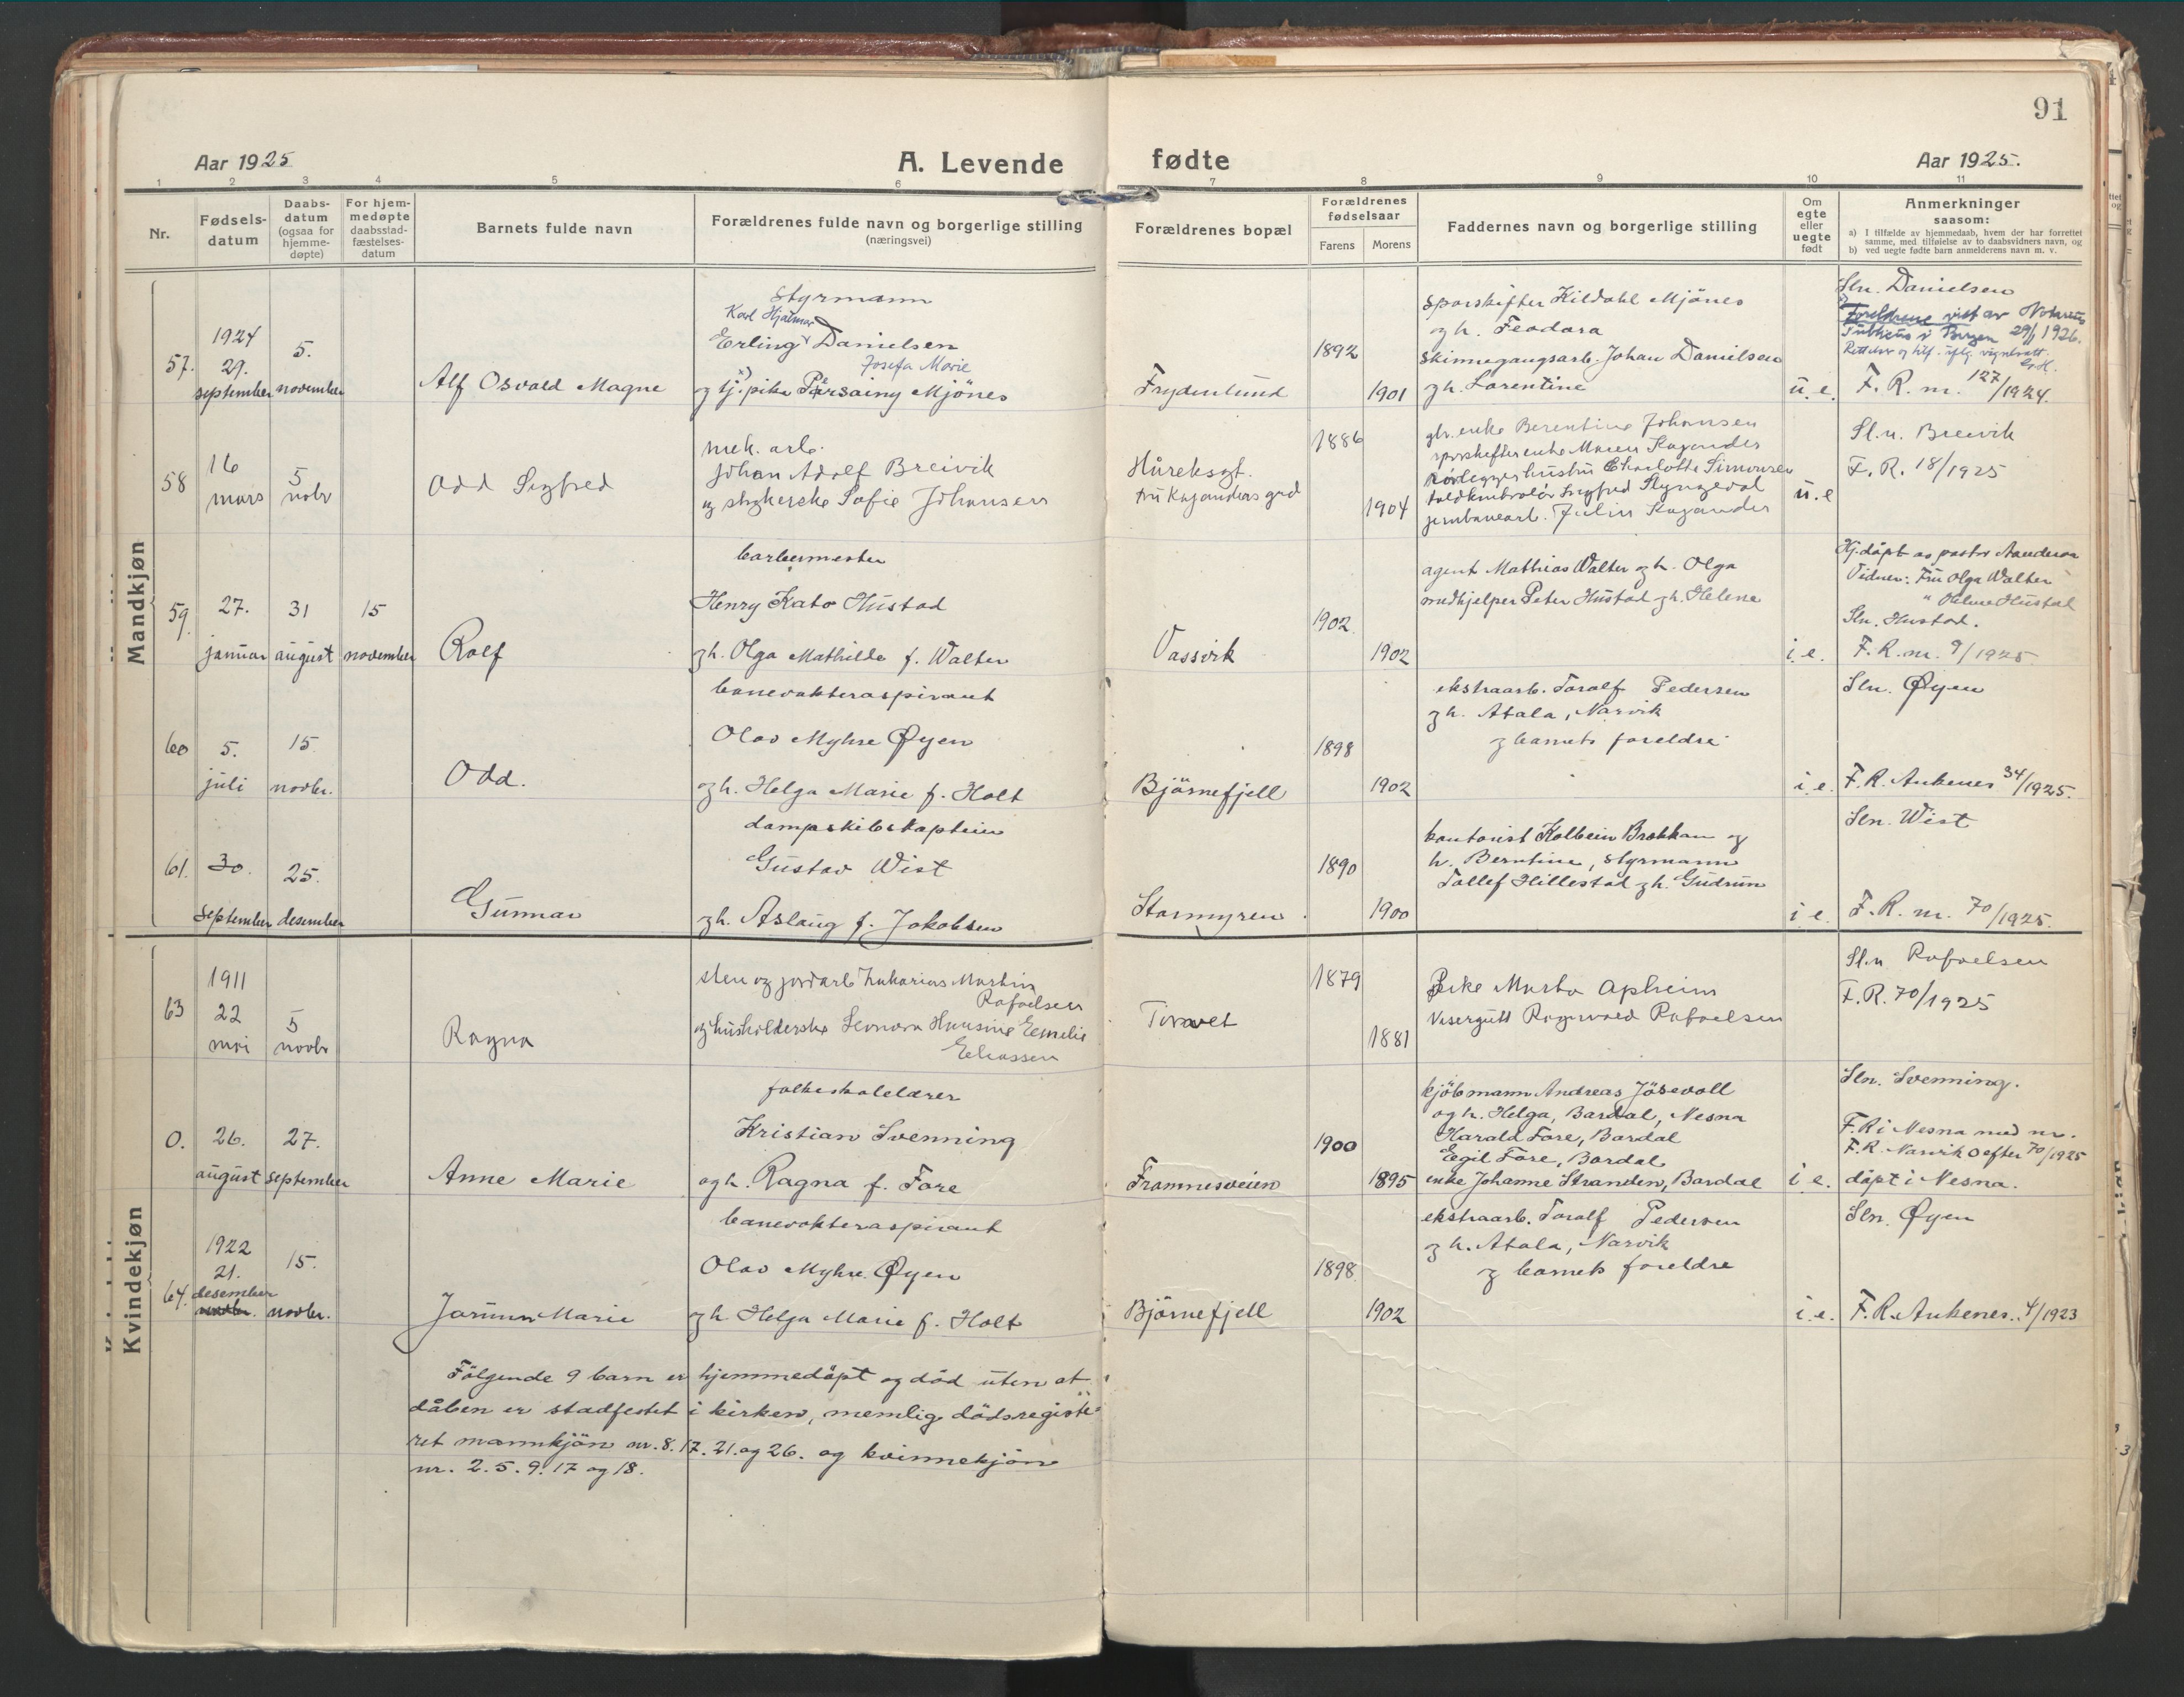 91
Aar 1925
A. Levende
fødte
Aar 1925.
1 2 3 4 5 6 7 8 9 10 11
Nr.
Fødsels-
datum
Daabs-
datum
(ogsaa for
hjemme-
døpte)
For hjem-
medøpte
daabsstad-
fæstelses-
datum
Barnets fulde navn
Forældrenes fulde navn og borgerlige stilling
(næringsvei)
Forældrenes bopæl
Forældrenes
fødselsaar
Farens
Morens
Faddernes navn og borgerlige stilling
Om
egte
eller
uegte
født
Anmerkninger
saasom:
a) I tilfælde av hjemmedaab, hvem der har forrettet
samme, med tilføielse av to daabsvidners navn, og
b) ved uegte fødte barn anmelderens navn m. v.
Mandkjøn
57.
1924
29.
september
5.
november
Alf Osvald Magne
styrmann
Karl Hjalmar
Erling Danielsen
Josefa Marie
og tj.pike Persainy Mjönes
Frydenlund
1892
1901
sporskifter Kildahl Mjönes
og h. Feodora
skinnegangsarb. Johan Danielsen
og h. Lorentine
u.e.
Sln. Danielsen
Foreldrene vist av Notarius
Publicus i Bergen 29/1 1926.
F. R. nr. 127/1924.
58
16
mars
5
novbr
Odd Sigfred
mek. arb.
Johan Adolf Breivik
og strykerske Sofie Johansen
Håreksgt.
fru Kaganders grd
1886
1904
gbr. enke Berentine Johansen
sporskifterenke Maren Kagander
rörleggerhustru Charlotte Simonsen
toldkontrolör Sigfred Slyngedal
jernbanearb. Julius Kagander
u.e
Sl.n. Breivik
F. R. 18/1925
59.
27.
januar
31
august
15
november
Rolf
barbermester
Henry Kato Hustad
og h. Olga Mathilde f. Walter
Vassvik
1902.
1902
agent Mathias Walter og h. Olga
medhjelper Peter Hustad og h. Helene
i.e.
Hj.döpt av pastor Aandersen
Vidner: Fru Olga Walter
" Helene Hustad
Sln. Hustad.
F. R. nr. 9/1925
60
5.
juli
15
novbr.
Odd.
banevokteraspirant
Olav Myhre Øyen
og h. Helga Marie f. Holt
Björnefjell
1898
1902
ekstraarb. Toralf Pedersen
og h. Atala, Narvik
og barnets foreldre
i.e.
Sln. Øyen
F. R. Ankenes 34/1925.
61.
30.
september
25.
desember
Gunnar
dampskibskaptein
Gustav Wist
og h. Aslaug f. Jakobsen
Stormyren.
1890
1900
kontorist Kolbein Brekkan og
h. Berntine, styrmann
Tollef Hillestad og h. Gudrun
i.e.
Sln. Wist
F. R. nr. 70/1925.
Kvindekjøn
63
1911
22
mai
5
novbr
Ragna
sten og jordarb Zakarias Martin
Rafaelsen
og husholderske Leonora Hansine Emelie
Eliassen
Toravet
1879
1881
Enke Marta Apheim
Visergutt Ragnvald Rafaelsen
Sl.n Rafaelsen
F. R. 70/1925
0.
26.
august
27.
september
Anne Marie
folkeskolelærer
Kristian Svenning
og h. Ragna f. Fore
Framnesveien
1900
1895
kjöbmann Andreas Jösevoll
og h. Helga, Bardal, Nesna
Harald Fore, Bardal
Egil Fore, Bardal
enke Johanne Stranden, Bardal
i.e.
Sln. Svenning.
F. R i Nesna med nr.
F. R. Narvik 0 efter 70/1925
döpt i Nesna.
64.
1922
21.
desember
novbr.
15.
novbr.
Jorunn Marie
banevokteraspirant
Olav Myhre Øyen
og h. Helga Marie f. Holt
Björnefjell
1898
1902
ekstraarb. Toralf Pedersen
og h. Atala, Narvik
og barnets foreldre
i.e.
Sln. Øyen
F. R. Ankenes. 4/1923
Fölgende 9 barn er hjemmedöpt og död uten at
dåben er stadfestet i kirken, nemlig dödsregiste-
ret mannkjön nr. 8. 17. 21. og 26. og kvinnekjön
nr. 2. 5. 9. 17 og 18.